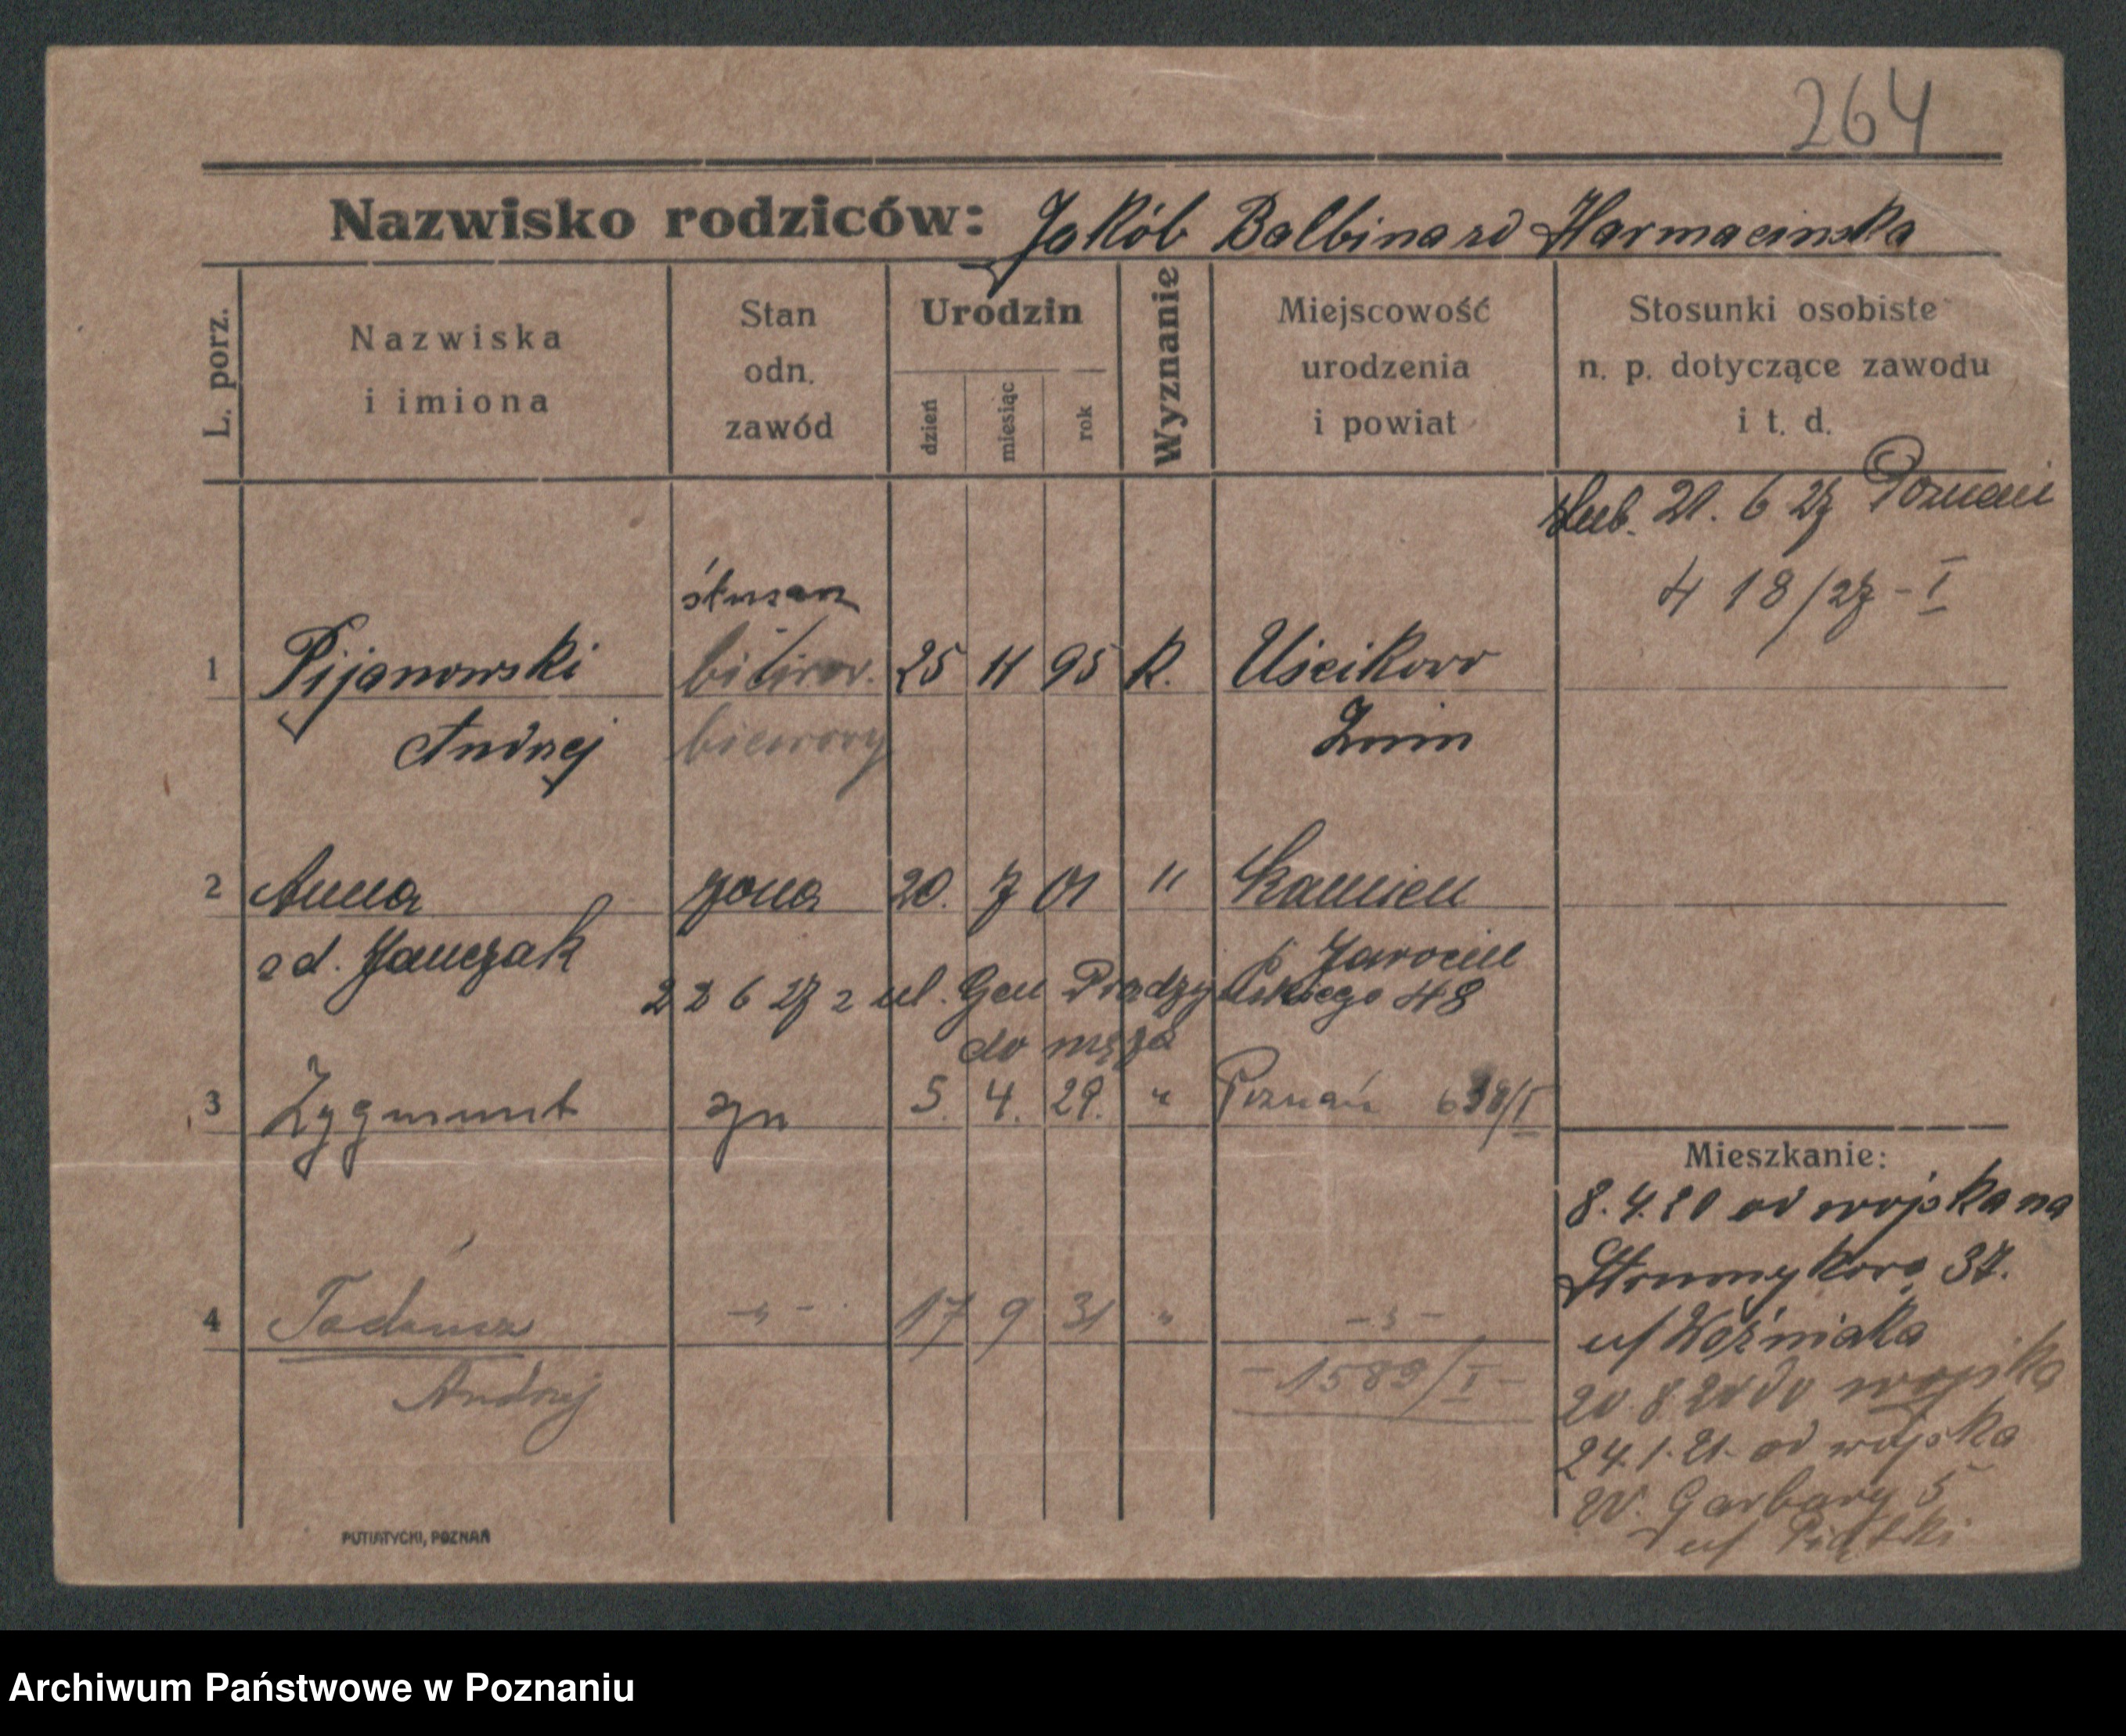 264
Nazwisko rodziców: Jakób Balbina zd Harmacinska
L. porz.
Nazwiska
i imiona
Stan
odn.
zawód
Urodzin
dzień
miesiąc
rok
Wyznanie
Miejscowość
urodzenia
i powiat
Stosunki osobiste
n. p. dotyczące zawodu
i t. d.
ślub. 21. 6 27 Poznań
418/27 - I
1 Pijanowski 25 11 95 K. Uścikowo
Andrzej biurowy Żnin
2 Anna żona 20. 7 01 " Kamień
zd. Janczak p Jarocin
22 6 27 z ul. Gen Prądzyńskiego 48
do męża
3 Zygmunt syn 5. 4. 29. " Poznań
4 Tadeusz - " - 17 9 31 " - " -
Andrzej - 1589/I -
Mieszkanie:
8. 4. 20 od wojska na
Strumykowa 37.
u/ Woźniaka
20. 8. 20 do wojska
24. 1. 21. od wojska
W. Garbary 5
u/
PUTIATYCKI, POZNAŃ
Archiwum Państwowe w Poznaniu